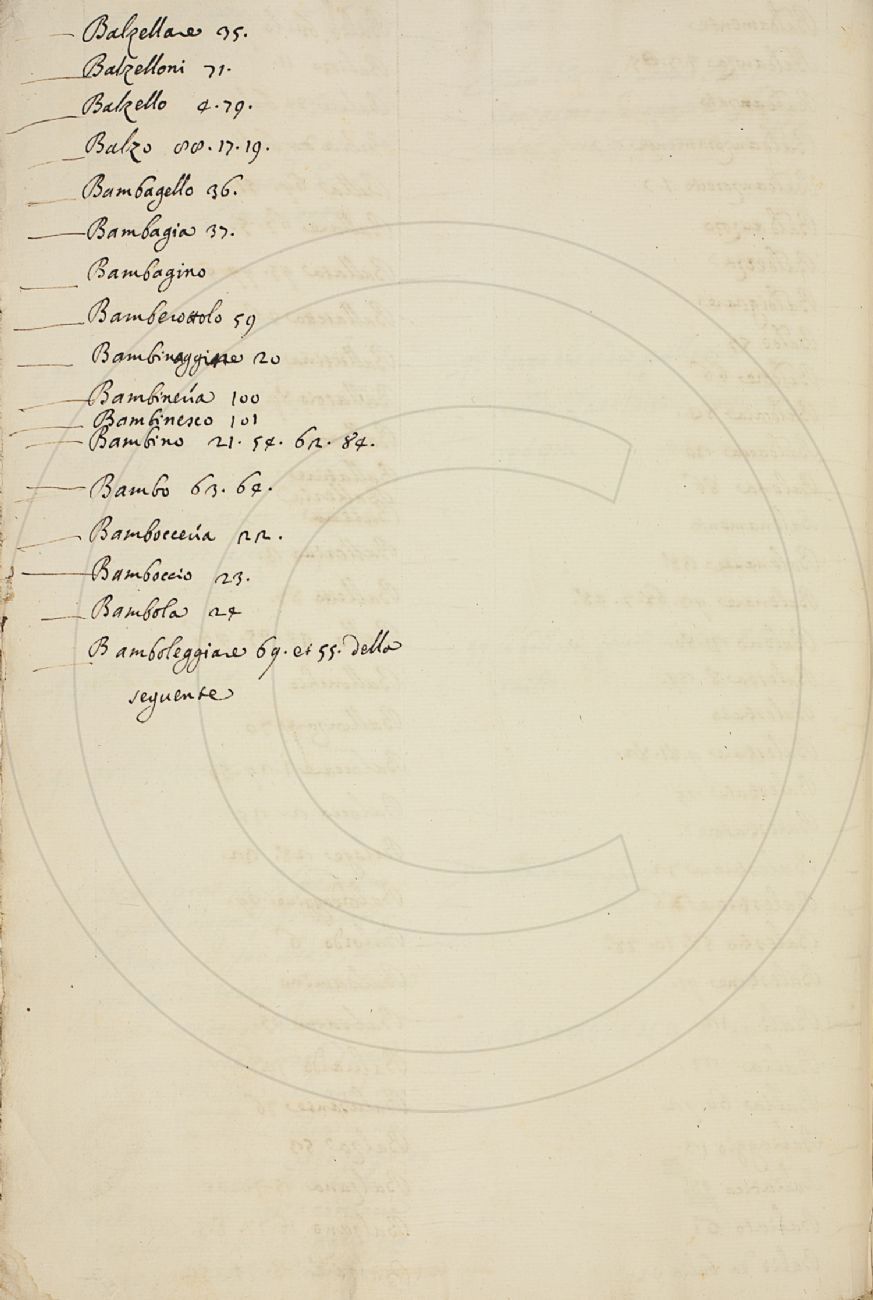 Balzellare 35.
Balzelloni 71.
Balzello 4. 79.
Balzo 88. 17. 19.
Bambagello 36.
Bambagia 37.
Bambagino
Bamberottolo 59
Bambinaggine 20
Bambineria 100
Bambinesco 101
Bambino 21. 54. 62. 84.
Bambo 63. 64.
Bambocceria 22.
Bamboccio 23.
Bambola 24
Bamboleggiare 69. et 55. della
seguente